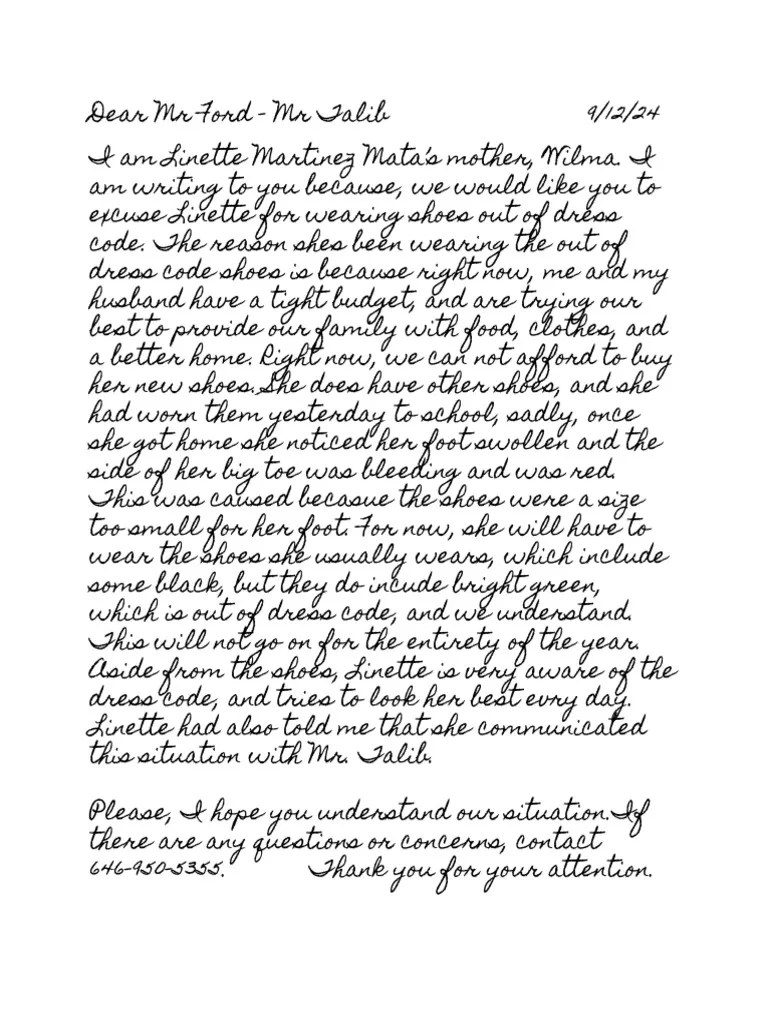 Dear Mr Ford - Mr Talib 9/12/24
I am Linette Martinez Mata's mother, Wilma. I
am writing to you because, we would like you to
excuse Linette for wearing shoes out of dress
code. The reason shes been wearing the out of
dress code shoes is because right now, me and my
husband have a tight budget, and are trying our
best to provide our family with food, clothes, and
a better home. Right now, we can not afford to buy
her new shoes. She does have other shoes, and she
had worn them yesterday to school, sadly, once
she got home she noticed her foot swollen and the
side of her big toe was bleeding and was red.
This was caused becasue the shoes were a size
too small for her foot. For now, she will have to
wear the shoes she usually wears, which include
some black, but they do incude bright green,
which is out of dress code, and we understand.
This will not go on for the entirety of the year.
Aside from the shoes, Linette is very aware of the
dress code, and tries to look her best evry day.
Linette had also told me that she communicated
this situation with Mr. Talib.
Please, I hope you understand our situation. If
there are any questions or concerns, contact
646-950-5355. Thank you for your attention.